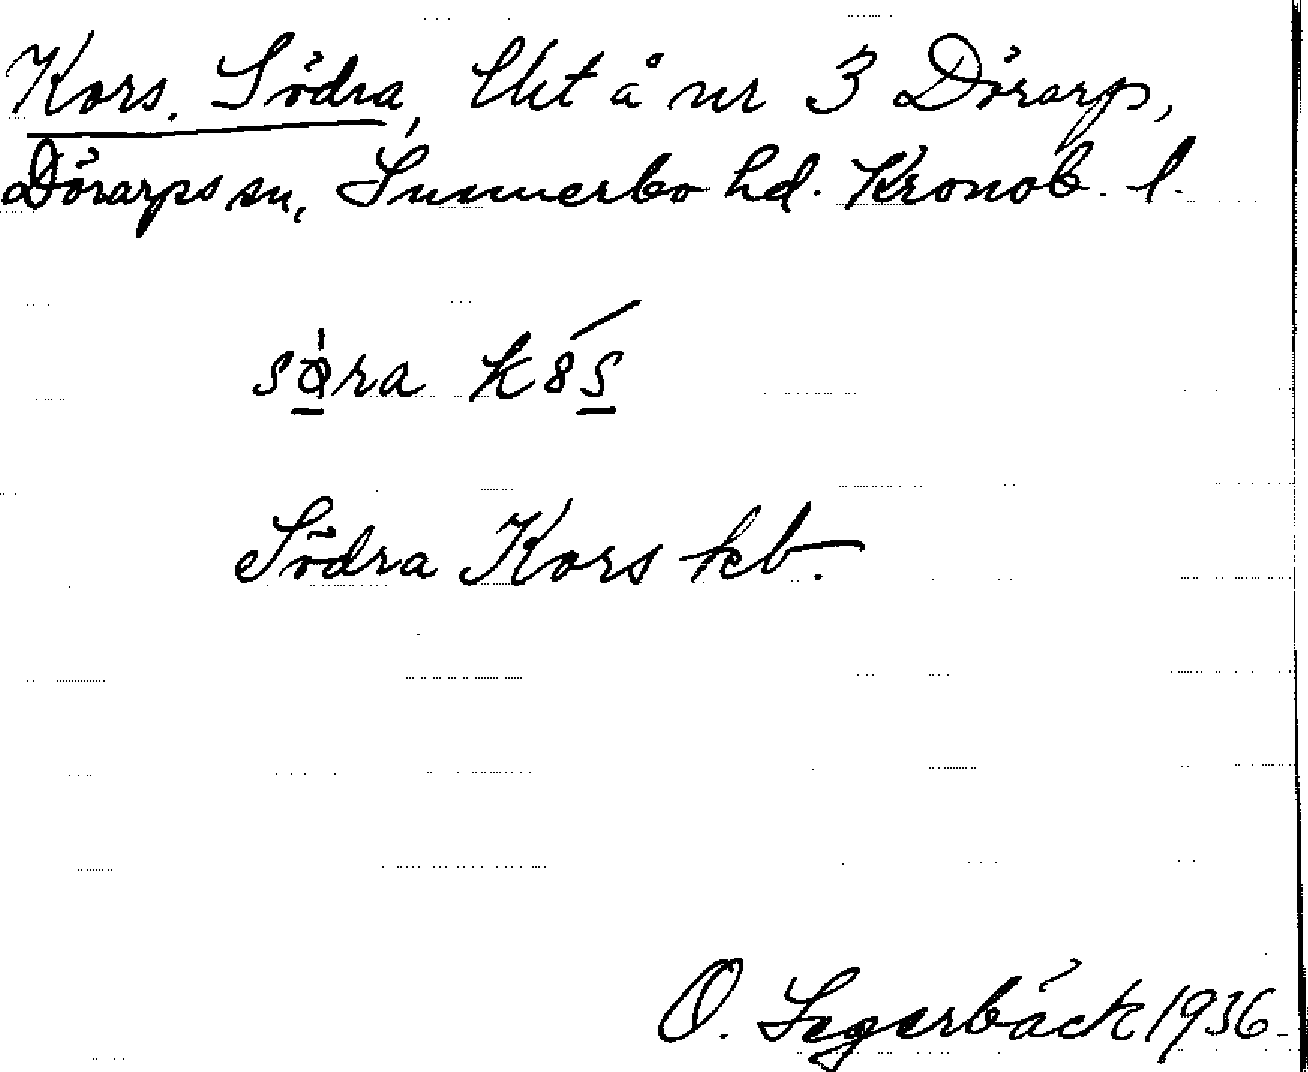 Kors. Södra, lht å nr 3 Dörarp,
Dörarps sn, Sunnerbo hd. Kronob. l.
søra k8s
Södra Kors kb.
O. Segerbäck 1936